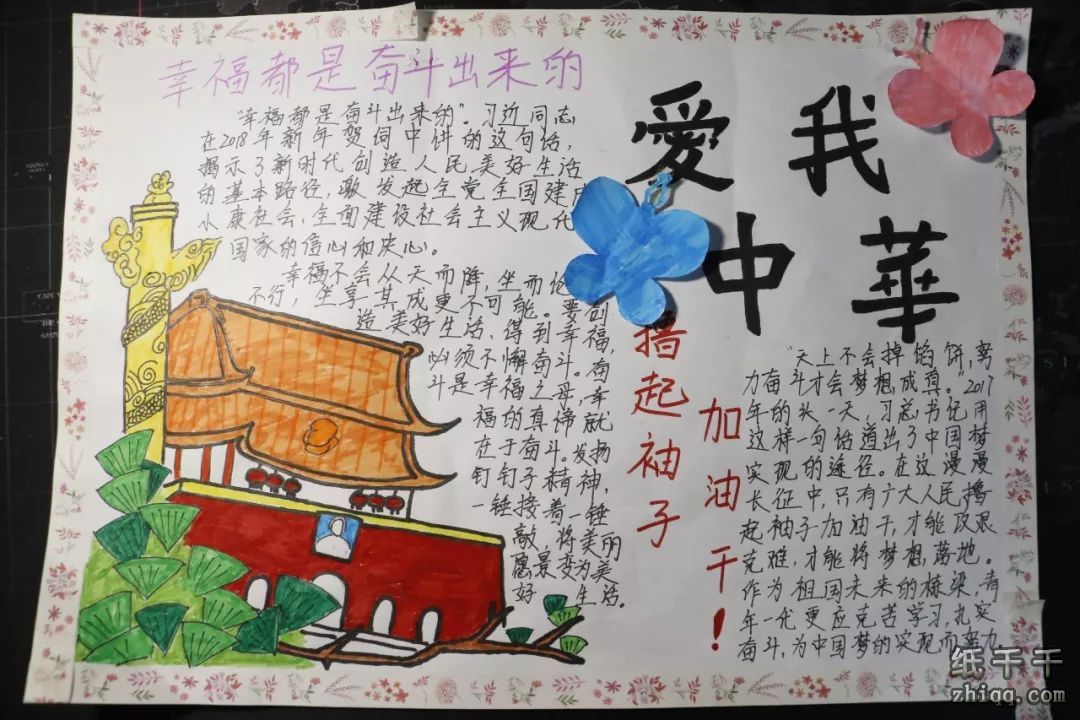 幸福都是奋斗出来的
"幸福都是奋斗出来的"。习近同志
在2018年新年贺词中讲的这句话,
揭示了新时代创造人民美好生活
的基本路径,激发起全党全国建成
小康社会、全面建设社会主义现代
国家的信心和决心。
幸福不会从天而降,坐而论
不行,坐享其成更不可能。要创
造美好生活,得到幸福,
必须不懈奋斗。奋
斗是幸福之母,幸
福的真谛就
在于奋斗。发扬
钉钉子精神,
一锤接着一锤
敲,将美丽
愿景变为美
好生活。
愛我
中華
撸起袖子
加油干!
"天上不会掉馅饼,努
力奋斗才会梦想成真。"2017
年的头一天,习总书记用
这样一句话道出了中国梦
实现的途径。在这漫漫
长征中,只有广大人民撸
起袖子加油干,才能攻艰
克难,才能将梦想落地。
作为祖国未来的栋梁,青
年一代更应克苦学习,扎实
奋斗,为中国梦的实现而努力
纸千千
zhiqq.com